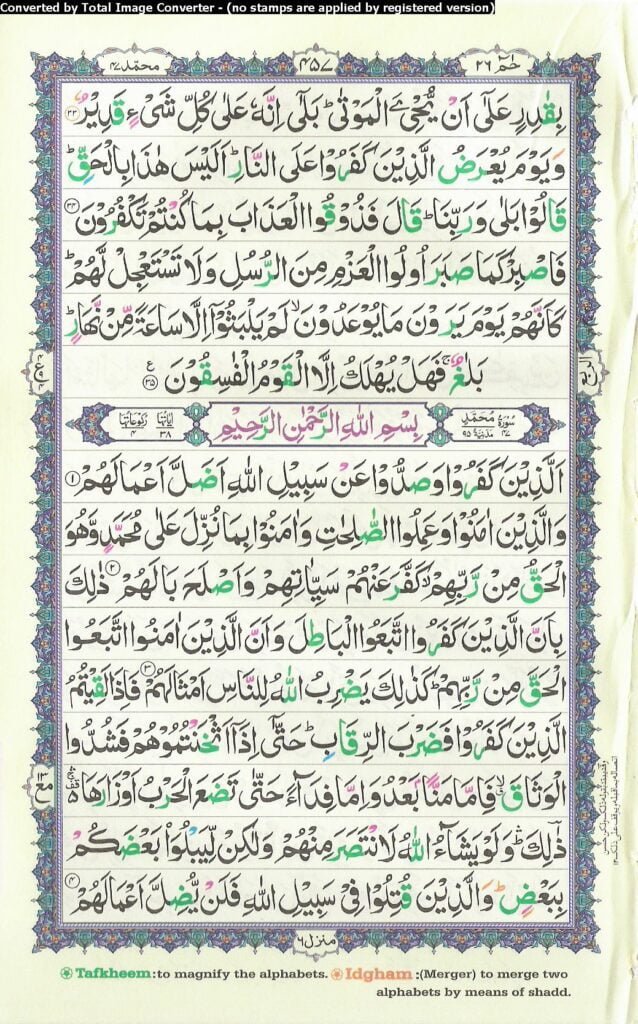 Converted by Total Image Converter - (no stamps are applied by registered version)
حٰمٓ ٢٦
٤٥٧
محمّد ٤٧
بِقٰدِرٍ عَلٰۤى اَنْ يُّحْیِۦَ الْمَوْتٰى ؕ بَلٰۤى اِنَّهٗ عَلٰى كُلِّ شَىْءٍ قَدِيْرٌ ٣٣
وَيَوْمَ يُعْرَضُ الَّذِيْنَ كَفَرُوْا عَلَى النَّارِ ؕ اَلَيْسَ هٰذَا بِالْحَقِّ ؕ
قَالُوْا بَلٰى وَرَبِّنَا ؕ قَالَ فَذُوْقُوا الْعَذَابَ بِمَا كُنْتُمْ تَكْفُرُوْنَ ٣٤
فَاصْبِرْ كَمَا صَبَرَ اُولُوا الْعَزْمِ مِنَ الرُّسُلِ وَلَا تَسْتَعْجِلْ لَّهُمْ ؕ
كَاَنَّهُمْ يَوْمَ يَرَوْنَ مَا يُوْعَدُوْنَ ۙ لَمْ يَلْبَثُوْۤا اِلَّا سَاعَةً مِّنْ نَّهَارٍ ؕ
بَلٰغٌ ۚ فَهَلْ يُهْلَكُ اِلَّا الْقَوْمُ الْفٰسِقُوْنَ ٣٥ ع
سُوْرَةُ مُحَمَّدٍ ٤٧ مَدَنِيَّةٌ ٩٥
بِسْمِ اللّٰهِ الرَّحْمٰنِ الرَّحِيْمِ
اٰيَاتُهَا ٣٨ رُكُوْعَاتُهَا ٤
اَلَّذِيْنَ كَفَرُوْا وَصَدُّوْا عَنْ سَبِيْلِ اللّٰهِ اَضَلَّ اَعْمَالَهُمْ ١
وَالَّذِيْنَ اٰمَنُوْا وَعَمِلُوا الصّٰلِحٰتِ وَاٰمَنُوْا بِمَا نُزِّلَ عَلٰى مُحَمَّدٍ وَّهُوَ
الْحَقُّ مِنْ رَّبِّهِمْ ۙ كَفَّرَ عَنْهُمْ سَيِّاٰتِهِمْ وَاَصْلَحَ بَالَهُمْ ٢ ذٰلِكَ
بِاَنَّ الَّذِيْنَ كَفَرُوا اتَّبَعُوا الْبَاطِلَ وَاَنَّ الَّذِيْنَ اٰمَنُوا اتَّبَعُوا
الْحَقَّ مِنْ رَّبِّهِمْ ؕ كَذٰلِكَ يَضْرِبُ اللّٰهُ لِلنَّاسِ اَمْثَالَهُمْ ٣ فَاِذَا لَقِيْتُمُ
الَّذِيْنَ كَفَرُوْا فَضَرْبَ الرِّقَابِ ؕ حَتّٰۤى اِذَاۤ اَثْخَنْتُمُوْهُمْ فَشُدُّوا
الْوَثَاقَ ۙ فَاِمَّا مَنًّۢا بَعْدُ وَاِمَّا فِدَآءً حَتّٰى تَضَعَ الْحَرْبُ اَوْزَارَهَا
ذٰلِكَ ؕ وَلَوْ يَشَآءُ اللّٰهُ لَانْتَصَرَ مِنْهُمْ وَلٰكِنْ لِّيَبْلُوَا۟ بَعْضَكُمْ
بِبَعْضٍ ؕ وَالَّذِيْنَ قُتِلُوْا فِىْ سَبِيْلِ اللّٰهِ فَلَنْ يُّضِلَّ اَعْمَالَهُمْ ٤
منزل ٦
Tafkheem :to magnify the alphabets. Idgham :(Merger) to merge two
alphabets by means of shadd.